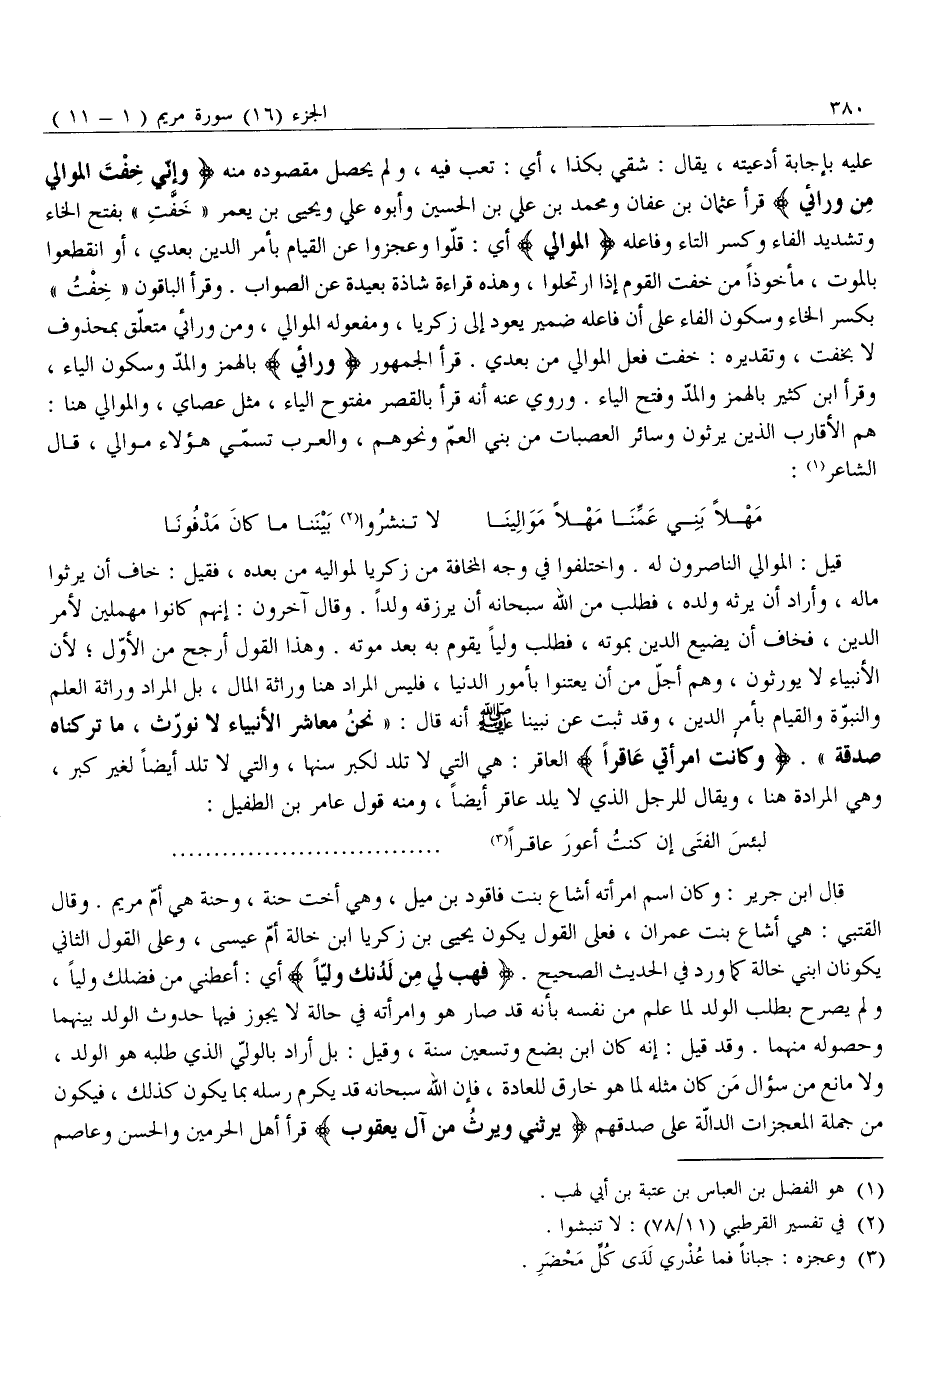 ٣٨٠
الجزء (١٦) سورة مريم ( ١ - ١١ )
عليه بإجابة أدعيته ، يقال : شقي بكذا ، أي : تعب فيه ، ولم يحصل مقصوده منه ﴿ وإنّي خِفْتَ الموالي
مِن ورائي ﴾ قرأ عثمان بن عفان ومحمد بن علي بن الحسين وأبوه علي ويحيى بن يعمر « خَفَّتِ » بفتح الخاء
وتشديد الفاء وكسر التاء وفاعله ﴿ الموالي ﴾ أي : قلّوا وعجزوا عن القيام بأمر الدين بعدي ، أو انقطعوا
بالموت ، مأخوذاً من خفت القوم إذا ارتحلوا ، وهذه قراءة شاذة بعيدة عن الصواب . وقرأ الباقون « خِفْتُ »
بكسر الخاء وسكون الفاء على أن فاعله ضمير يعود إلى زكريا ، ومفعوله الموالي ، ومن ورائي متعلّق بمحذوف
لا بخفت ، وتقديره : خفت فعل الموالي من بعدي . قرأ الجمهور ﴿ ورائي ﴾ بالهمز والمدّ وسكون الياء ،
وقرأ ابن كثير بالهمز والمدّ وفتح الياء . وروي عنه أنه قرأ بالقصر مفتوح الياء ، مثل عصاي ، والموالي هنا :
هم الأقارب الذين يرثون وسائر العصبات من بني العمّ ونحوهم ، والعرب تسمّي هؤلاء موالي ، قال
الشاعر(١) :
مَهْلاً بَنِي عَمِّنَا مَهْلاً مَوَالِينَا لا تنشُروا(٢) بَيْنَنا ما كانَ مَدْفُونَا
قيل : الموالي الناصرون له . واختلفوا في وجه المخافة من زكريا لمواليه من بعده ، فقيل : خاف أن يرثوا
ماله ، وأراد أن يرثه ولده ، فطلب من الله سبحانه أن يرزقه ولداً . وقال آخرون : إنهم كانوا مهملين لأمر
الدين ، فخاف أن يضيع الدين بموته ، فطلب ولياً يقوم به بعد موته . وهذا القول أرجح من الأوّل ؛ لأن
الأنبياء لا يورثون ، وهم أجلّ من أن يعتنوا بأمور الدنيا ، فليس المراد هنا وراثة المال ، بل المراد وراثة العلم
والنبوّة والقيام بأمر الدين ، وقد ثبت عن نبينا ﷺ أنه قال : « نحنُ معاشر الأنبياء لا نورّث ، ما تركناه
صدقة » . ﴿ وكانت امرأتي عَاقراً ﴾ العاقر : هي التي لا تلد لكبر سنها ، والتي لا تلد أيضاً لغير كبر ،
وهي المرادة هنا ، ويقال للرجل الذي لا يلد عاقر أيضاً ، ومنه قول عامر بن الطفيل :
لبئسَ الفتَى إن كنتُ أعورَ عاقراً(٣) ................................
قال ابن جرير : وكان اسم امرأته أشاع بنت فاقود بن ميل ، وهي أخت حنة ، وحنة هي أمّ مريم . وقال
القتبي : هي أشاع بنت عمران ، فعلى القول يكون يحيى بن زكريا ابن خالة أمّ عيسى ، وعلى القول الثاني
يكونان ابني خالة كما ورد في الحديث الصحيح . ﴿ فهب لي مِن لَدُنك وليّاً ﴾ أي : أعطني من فضلك ولياً ،
ولم يصرح بطلب الولد لما علم من نفسه بأنه قد صار هو وامرأته في حالة لا يجوز فيها حدوث الولد بينهما
وحصوله منهما . وقد قيل : إنه كان ابن بضع وتسعين سنة ، وقيل : بل أراد بالوليّ الذي طلبه هو الولد ،
ولا مانع من سؤال مَن كان مثله لما هو خارق للعادة ، فإن الله سبحانه قد يكرم رسله بما يكون كذلك ، فيكون
من جملة المعجزات الدالّة على صدقهم ﴿ يرثني ويرثُ من آل يعقوب ﴾ قرأ أهل الحرمين والحسن وعاصم
(١) هو الفضل بن العباس بن عتبة بن أبي لهب .
(٢) في تفسير القرطبي (٧٨/١١) : لا تنبشوا .
(٣) وعجزه : جباناً فما عُذْري لَدَى كُلِّ مَحْضَرِ .